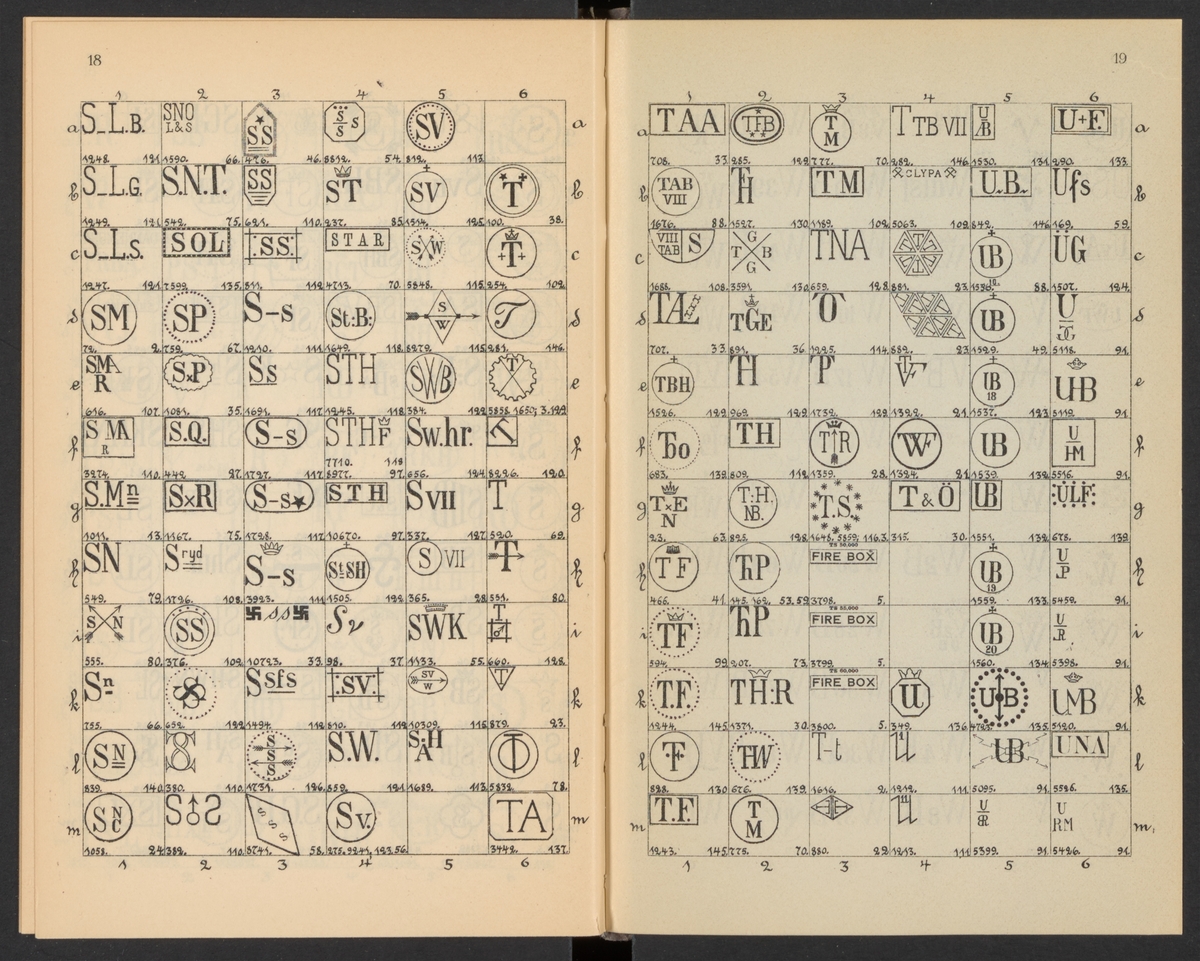 18
1 2 3 4 5 6
a S_L.B. SNO L&S SS S S S SV a
1248. 121. 1590. 66. 476. 46. 8812. 54. 812. 113.
b S_L.G. S.N.T. SS ST SV T b
1249. 121. 542. 75. 621. 110. 237. 85. 1514. 125. 100. 38.
c S_L.S. SOL :SS: STAR SXW T c
1247. 121. 7599. 135. 811. 112. 4713. 70. 5848. 115. 254. 102.
d SM SP S-s St:B: S W T d
72. 2. 759. 67. 1210. 111. 1649. 118. 8279. 115. 281. 146.
e SMA R SxP Ss STH SWB T e
616. 107. 1081. 35. 1691. 117. 1245. 118. 384. 122. 5858. 1650; 3.129.
f SMA R S.Q. S-s STHF Sw.hr. T f
3274. 110. 442. 27. 1727. 117. 7710. 118 8977. 97. 656. 124. 8226. 120.
g S.Mn SxR S-s STH SVII T g
1011. 13. 1167. 75. 1728. 117. 10670. 97. 337. 127. 520. 69.
h SN Sryd S-s StSH S VII T h
549. 79. 1796. 108. 3923. 111. 1505. 122. 365. 28. 551. 80.
i S N SS 卐 SS 卐 Sv SWK T i
555. 80. 376. 109. 10723. 33. 98. 37. 1133. 55. 660. 128.
k Sn S Ssfs :SV: SV W T k
755. 66. 652. 122. 1494. 112. 810. 112. 10309. 115. 879. 23.
l SN S S S S.W. S.H A T l
839. 140. 380. 110. 1731. 126. 559. 121. 1689. 113. 5832. 78.
m SNC S S S S S Sv. TA m
1058. 24. 382. 110. 5741. 58. 275. 9241. 123. 56. 3442. 137.
1 2 3 4 5 6
19
1 2 3 4 5 6
a TAA TFB TM TTB VII U B U+F. a
708. 33. 285. 122. 777. 70. 282. 146. 1530. 131. 290. 133.
b TAB VIII TH TM CLYPA U.B. Ufs b
1676. 88. 1527. 130. 1189. 102. 5063. 109. 842. 146. 169. 59.
c VIII TAB S T G B G TNA T UB ÜG c
1688. 108. 3591. 130. 659. 128. 881. 23. 1536. 88. 1507. 124.
d TAL TGE UB U G d
707. 33. 891. 36. 1225. 114. 882. 23. 1529. 49. 5118. 91.
e TBH TH TP TF UB 18 UB e
1526. 129. 969. 129. 1752. 122. 1322. 21. 1537. 123. 5119. 91.
f Tbo TH TR W UB U HM f
683. 139. 809. 112. 1359. 28. 1324. 21. 1539. 132. 5516. 91.
g TxE N T:H. NB. T.S. T&Ö UB :ÜLF: g
23. 63. 825. 128. 1648. 5859. 116.3. 315. 30. 1551. 132. 678. 139.
h TF ThP TS 50,000 FIRE BOX UB 19 U P h
466. 41. 145. 162. 53.59. 3798. 5. 1559. 133. 5459. 91.
i TF hP TS 55.000 FIRE BOX UB 20 U R i
594. 99. 207. 73. 3799. 5. 1560. 134. 5398. 91.
k T.F TH:R TS 60,000 FIRE BOX U UB UMB k
1244. 145. 1371. 30. 3800. 5. 349. 136. 4722. 135. 5120. 91.
l TF THW T-t U UB UNA l
828. 130. 676. 139. 1616. 2. 5095. 91. 5586. 135.
m T.F. TM U R U RM m,
1243. 145. 775. 70. 880. 22. 1213. 111. 5399. 91. 5426. 91.
1 2 3 4 5 6